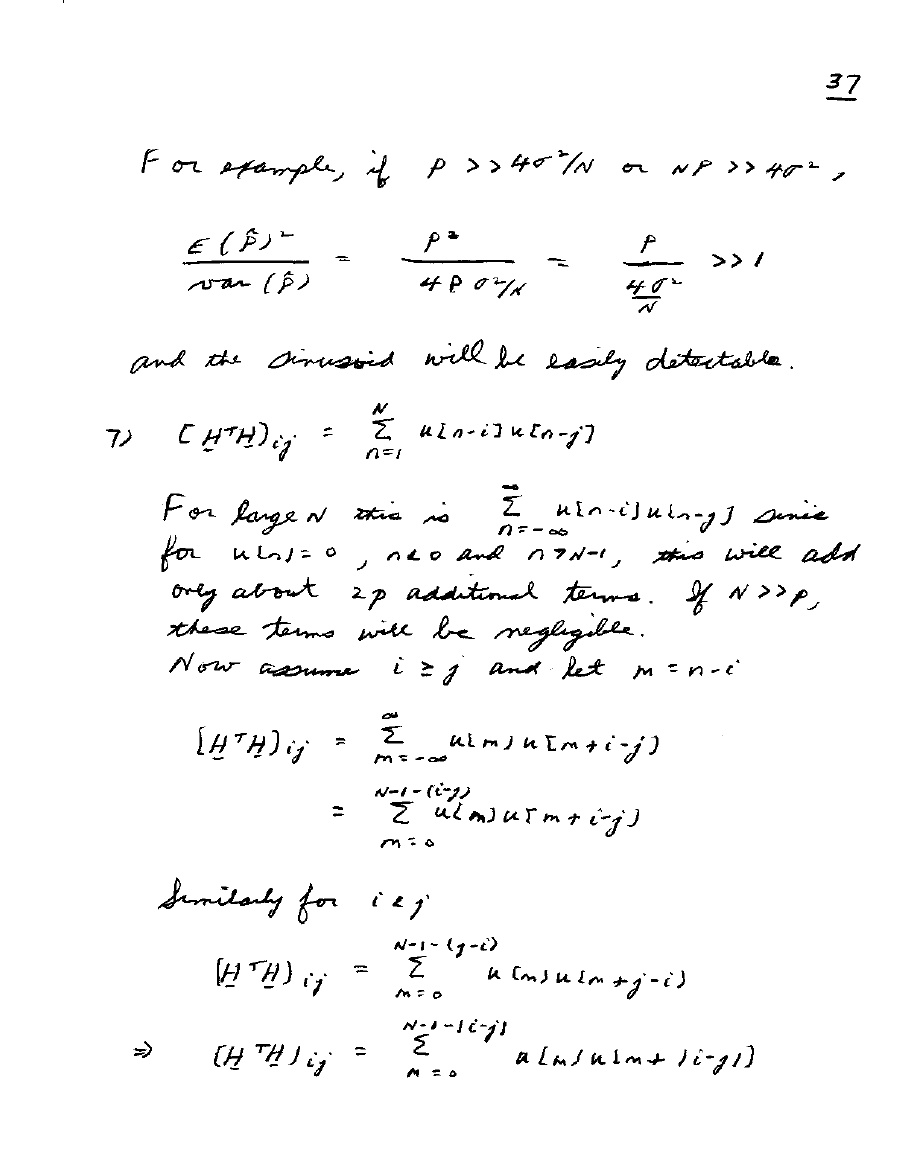 37
For example, if P >> 4σ²/N or NP >> 4σ²,
E(P̂)² / var(P̂) = P² / (4Pσ²/N) = P / (4σ²/N) >> 1
and the sinusoid will be easily detectable.
7) [HᵀH]ij = Σ_{n=1}^{N} u[n-i]u[n-j]
For large N this is Σ_{n=-∞}^{∞} u[n-i]u[n-j] since
for u[n]=0, n<0 and n>N-1, this will add
only about 2p additional terms. If N>>p,
these terms will be negligible.
Now assume i ≥ j and let m = n-i
[HᵀH]ij = Σ_{m=-∞}^{∞} u[m]u[m+i-j]
= Σ_{m=0}^{N-1-(i-j)} u[m]u[m+i-j]
Similarly for i<j
[HᵀH]ij = Σ_{m=0}^{N-1-(j-i)} u[m]u[m+j-i]
⇒ [HᵀH]ij = Σ_{m=0}^{N-1-|i-j|} u[m]u[m+|i-j|]